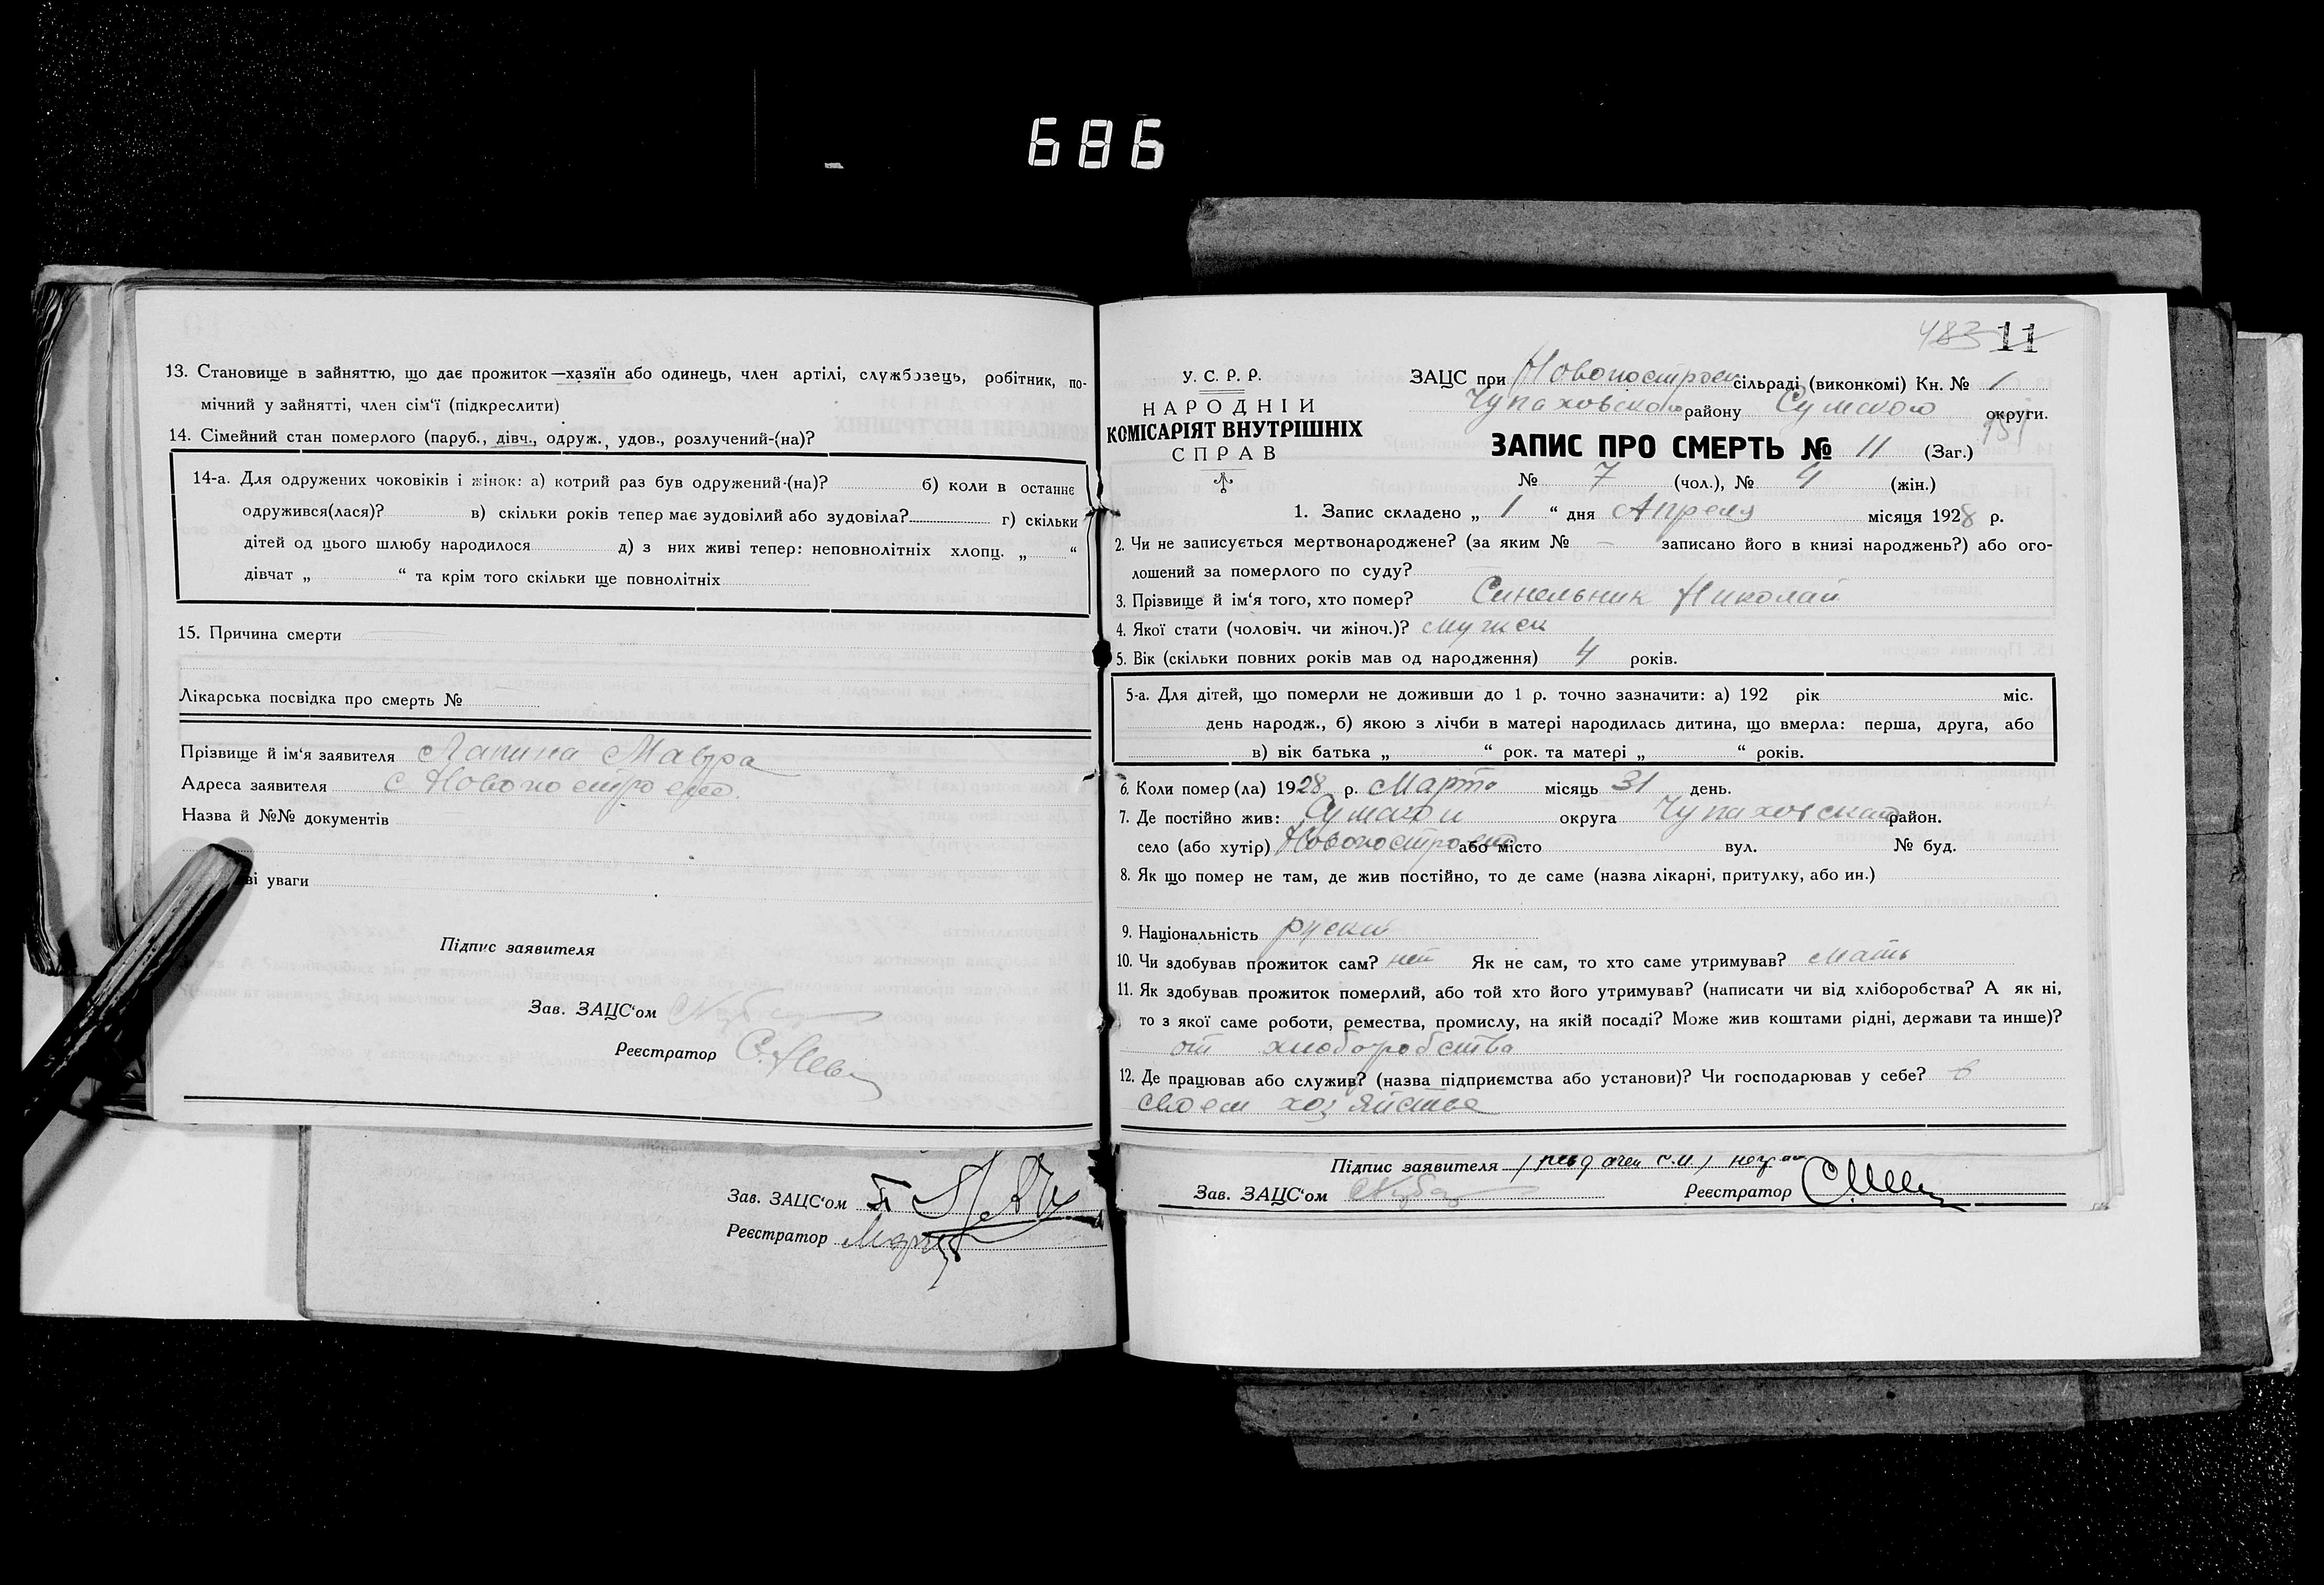 686
13. Становище в зайняттю, що дає прожиток—хазяїн або одинець, член артілі, службовець, робітник, по-
мічний у зайнятті, член сім'ї (підкреслити)
14. Сімейний стан померлого (паруб., дівч., одруж., удов., розлучений-(на)?
14-а. Для одружених чоковіків і жінок: а) котрий раз був одружений-(на)? б) коли в останнє
одружився(лася)? в) скільки років тепер має зудовілий або зудовіла? г) скільки
дітей од цього шлюбу народилося д) з них живі тепер: неповнолітніх хлопц. „ “
дівчат „ “ та крім того скільки ще повнолітніх
15. Причина смерти
Лікарська посвідка про смерть №
Прізвище й ім'я заявителя Лапина Мавра
Адреса заявителя с Новопостроено.
Назва й №№ документів
ві уваги
Підпис заявителя
Зав. ЗАЦС'ом
Реєстратор
Зав. ЗАЦС'ом
Реєстратор
483 11
У. С. Р. Р.
НАРОДНІЙ
КОМІСАРІЯТ ВНУТРІШНІХ
СПРАВ
ЗАЦС при Новопостроен сільраді (виконкомі) Кн. № 1
Чупаховского району Сумского округи.
151
ЗАПИС ПРО СМЕРТЬ № 11 (Заг.)
№ 7 (чол.), № 4 (жін.)
1. Запис складено „ 1 “ дня Апреля місяця 1928 р.
2. Чи не записується мертвонароджене? (за яким № — записано його в книзі народжень?) або ого-
лошений за померлого по суду? —
3. Прізвище й ім'я того, хто помер? Синельник Николай
4. Якої стати (чоловіч. чи жіноч.)? мужск
5. Вік (скільки повних років мав од народження) 4 років.
5-а. Для дітей, що померли не доживши до 1 р. точно зазначити: а) 192 рік міс.
день народж., б) якою з лічби в матері народилась дитина, що вмерла: перша, друга, або
в) вік батька „ “ рок. та матері „ “ років.
6. Коли помер(ла) 1928 р. Марта місяць 31 день.
7. Де постійно жив: Сумской округа Чупаховский район.
село (або хутір) Новопостроено або місто вул. № буд.
8. Як що помер не там, де жив постійно, то де саме (назва лікарні, притулку, або ин.)
9. Національність руский
10. Чи здобував прожиток сам? нет Як не сам, то хто саме утримував? мать
11. Як здобував прожиток померлий, або той хто його утримував? (написати чи від хліборобства? А як ні,
то з якої саме роботи, ремества, промислу, на якій посаді? Може жив коштами рідні, держави та инше)?
от хлоборобства
12. Де працював або служив? (назва підприємства або установи)? Чи господарював у себе? в
своем хозяйстве
Підпис заявителя
Зав. ЗАЦС'ом
Реєстратор